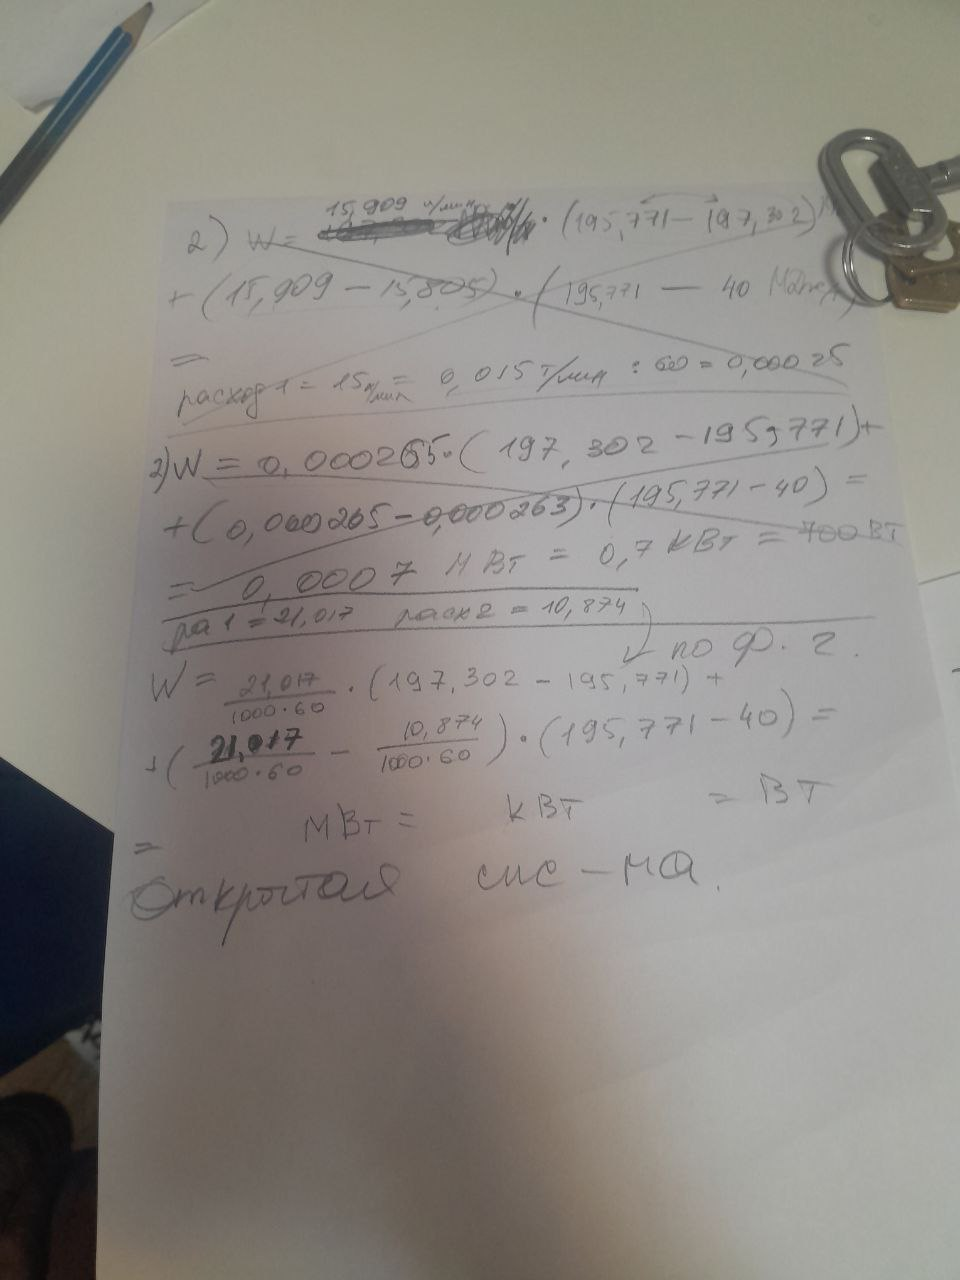 15,909 л/мин
2) W = · (195,771 – 197,302)
+ (15,909 – 15,805) · (195,771 – 40
=
расход 1 = 15 л/мин = 0,015 т/мин : 60 = 0,00025
2) W = 0,000265 · (197,302 – 195,771) +
+ (0,000265 – 0,000263) · (195,771 – 40) =
= 0,0007 МВт = 0,7 кВт = 700 Вт
ра 1 = 21,017 расх 2 = 10,874
по ф. 2.
W = 21,017/1000·60 · (197,302 – 195,771) +
+ (21,017/1000·60 – 10,874/1000·60) · (195,771 – 40) =
= МВт = кВт = Вт
Открытая сис-ма.